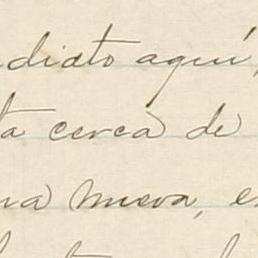 diato aquí,
ta cerca de
na nueva, e